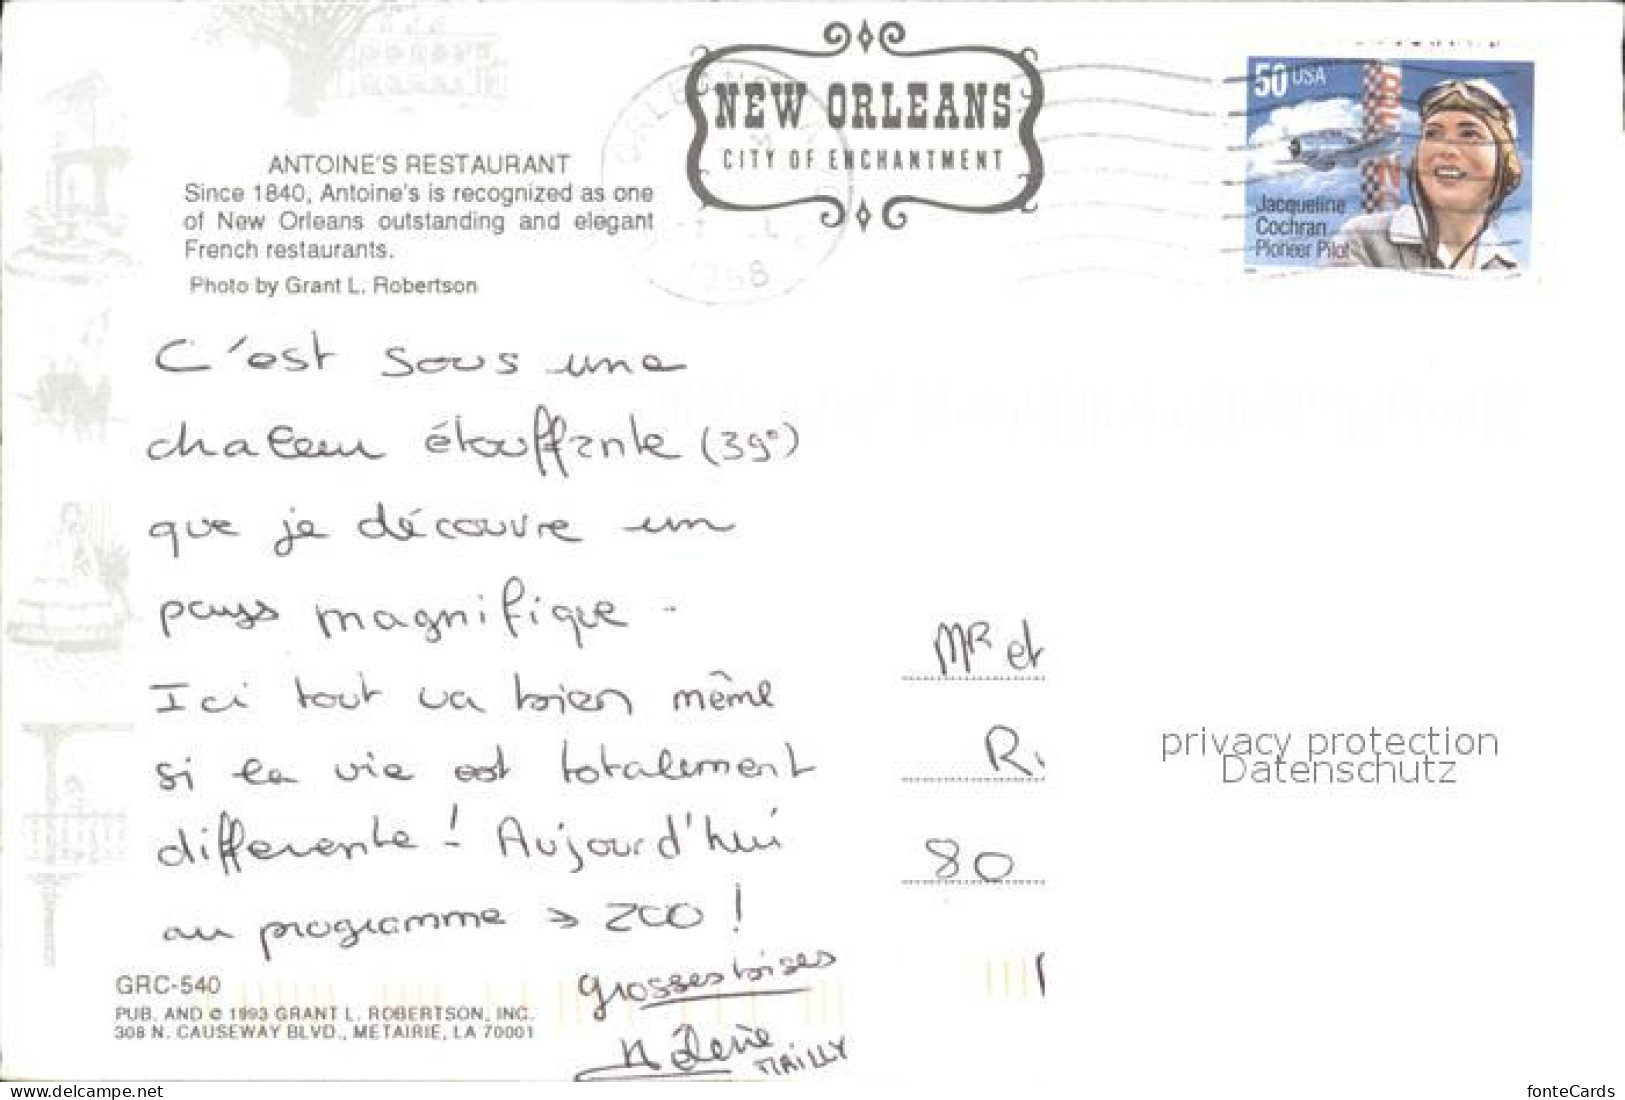 NEW ORLEANS
CITY OF ENCHANTMENT
50 USA
Jacqueline
Cochran
Pioneer Pilot
ANTOINE'S RESTAURANT
Since 1840, Antoine's is recognized as one
of New Orleans outstanding and elegant
French restaurants.
Photo by Grant L. Robertson
C'est sous une
chaleur étouffante (39°)
que je découvre un
pays magnifique -
Ici tout va bien même
si la vie est totalement
differente ! Aujourd'hui
au programme → ZOO !
grosses bises
MAILLY
Mr et
R
80
privacy protection
Datenschutz
GRC-540
PUB. AND © 1993 GRANT L. ROBERTSON, INC.
308 N. CAUSEWAY BLVD., METAIRIE, LA 70001
the best of collecting - delcampe.net
fonteCards